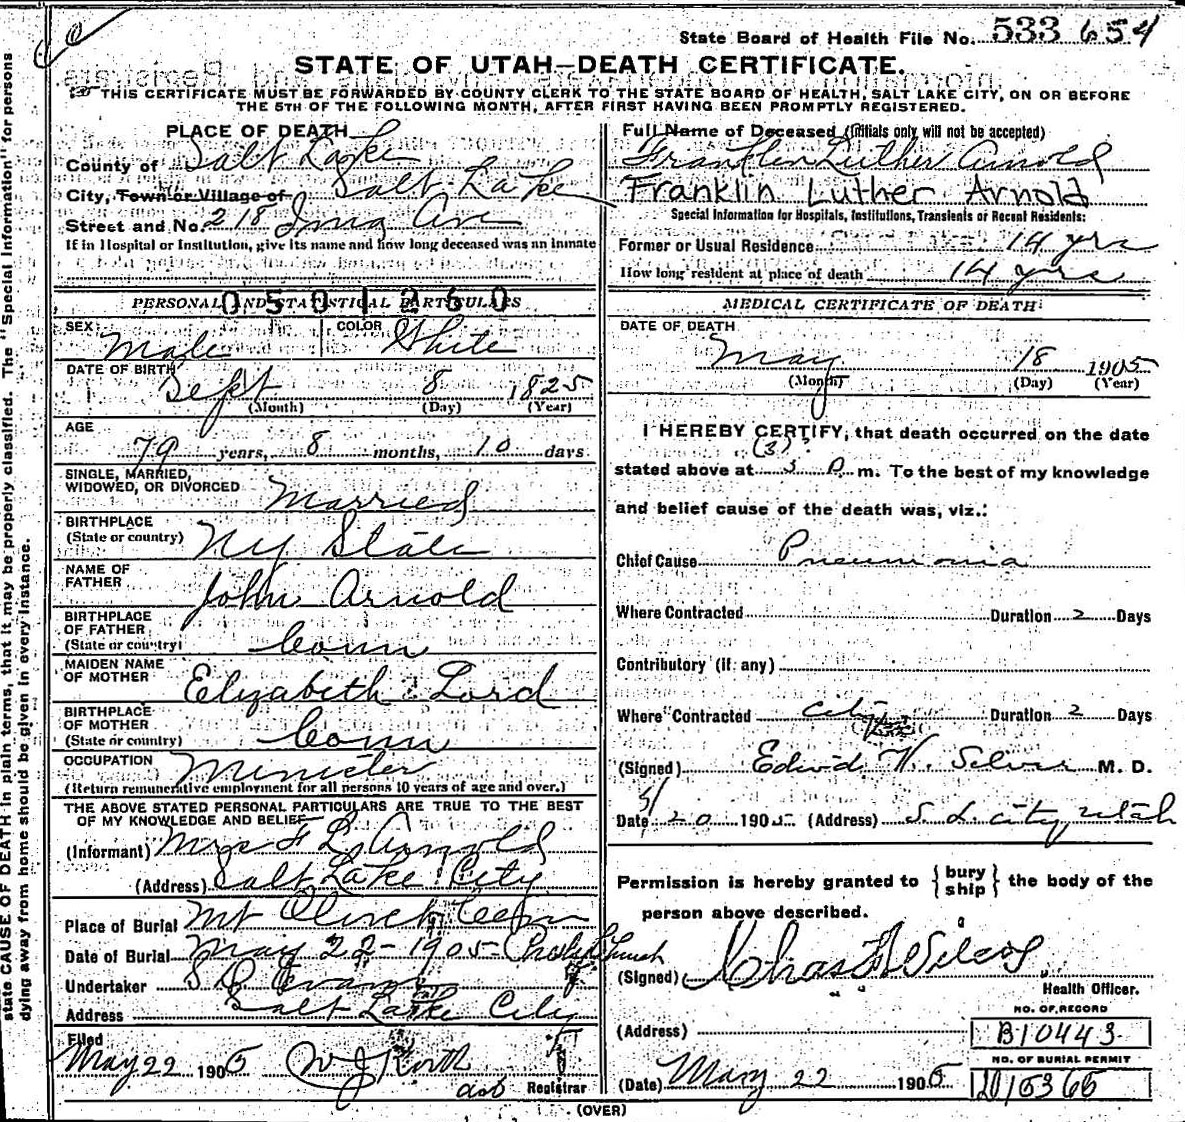 State Board of Health File No. 533 654
STATE OF UTAH—DEATH CERTIFICATE.
THIS CERTIFICATE MUST BE FORWARDED BY COUNTY CLERK TO THE STATE BOARD OF HEALTH, SALT LAKE CITY, ON OR BEFORE
THE 5TH OF THE FOLLOWING MONTH, AFTER FIRST HAVING BEEN PROMPTLY REGISTERED.
state CAUSE OF DEATH in plain terms, that it may be properly classified. The "Special Information" for persons
dying away from home should be given in every instance.
PLACE OF DEATH
County of Salt Lake
City, Town or Village of Salt Lake
Street and No. 218 Ave
If in Hospital or Institution, give its name and how long deceased was an inmate
050 1260
PERSONAL AND STATISTICAL PARTICULARS
SEX Male COLOR White
DATE OF BIRTH Sept 8 1825
(Month) (Day) (Year)
AGE 79 years, 8 months, 10 days
SINGLE, MARRIED,
WIDOWED, OR DIVORCED Married
BIRTHPLACE
(State or country) NY State
NAME OF
FATHER John Arnold
BIRTHPLACE
OF FATHER
(State or country) Conn
MAIDEN NAME
OF MOTHER Elizabeth Lord
BIRTHPLACE
OF MOTHER
(State or country) Conn
OCCUPATION Minister
(Return remunerative employment for all persons 10 years of age and over.)
THE ABOVE STATED PERSONAL PARTICULARS ARE TRUE TO THE BEST
OF MY KNOWLEDGE AND BELIEF
(Informant) Mrs F L Arnold
(Address) Salt Lake City
Place of Burial Mt Olivet Cem
Date of Burial May 22-1905
Undertaker S D Evans
Address Salt Lake City
Filed
May 22 1905 Registrar
Full Name of Deceased (Initials only will not be accepted)
Franklin Luther Arnold
Franklin Luther Arnold
Special Information for Hospitals, Institutions, Transients or Recent Residents:
Former or Usual Residence 14 yrs
How long resident at place of death 14 yrs
MEDICAL CERTIFICATE OF DEATH
DATE OF DEATH
May 18 1905
(Month) (Day) (Year)
I HEREBY CERTIFY, that death occurred on the date
(3)
stated above at 3 P m. To the best of my knowledge
and belief cause of the death was, viz.:
Chief Cause Pneumonia
Where Contracted Duration 2 Days
Contributory (if any)
Where Contracted City Duration 2 Days
(Signed) M. D.
Date 5/20 1905 (Address) S. L. City Utah
Permission is hereby granted to { bury ship } the body of the
person above described.
(Signed)
Health Officer.
NO. OF RECORD
(Address) B10443
NO. OF BURIAL PERMIT
(Date) May 22 1905
(OVER)